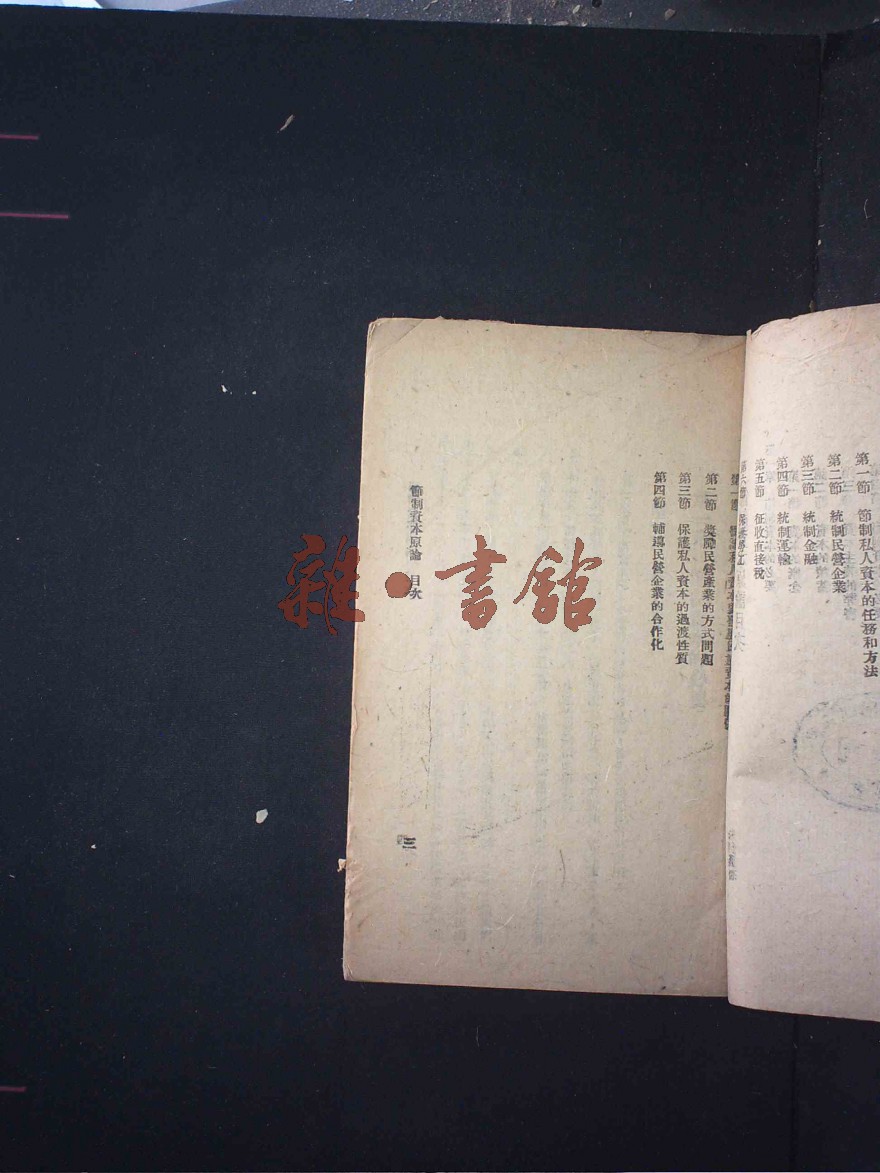 第一節　節制私人資本的任務和方法
第二節　統制民營企業
第三節　統制金融
第四節　統制運輸
第五節　征收直接稅
第六節
第一節
第二節　獎勵民營產業的方式問題
第三節　保護私人資本的過渡性質
第四節　輔導民營企業的合作化
節制資本原論　目次
三
雜·書館